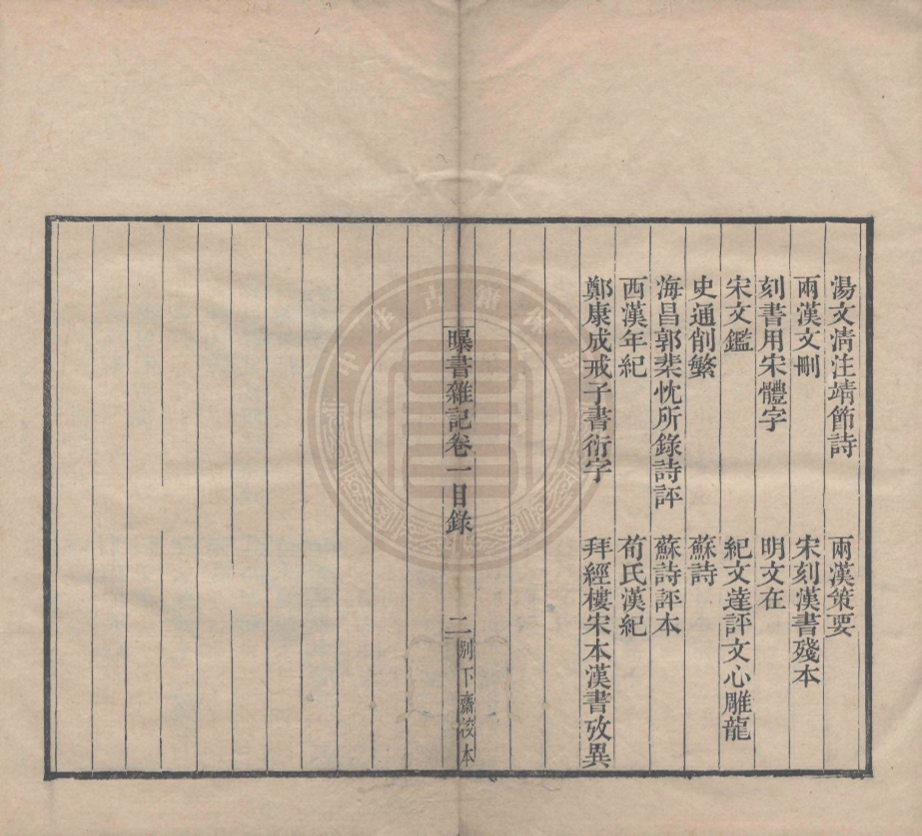 湯文清注靖節詩　兩漢策要
兩漢文刪　宋刻漢書殘本
刻書用宋體字　明文在
宋文鑑　紀文達評文心雕龍
史通削繁　蘇詩
海昌郭棐忱所錄詩評　蘇詩評本
西漢年紀　荀氏漢紀
鄭康成戒子書衍字　拜經樓宋本漢書攷異
曝書雜記卷一目錄　二　別下齋校本